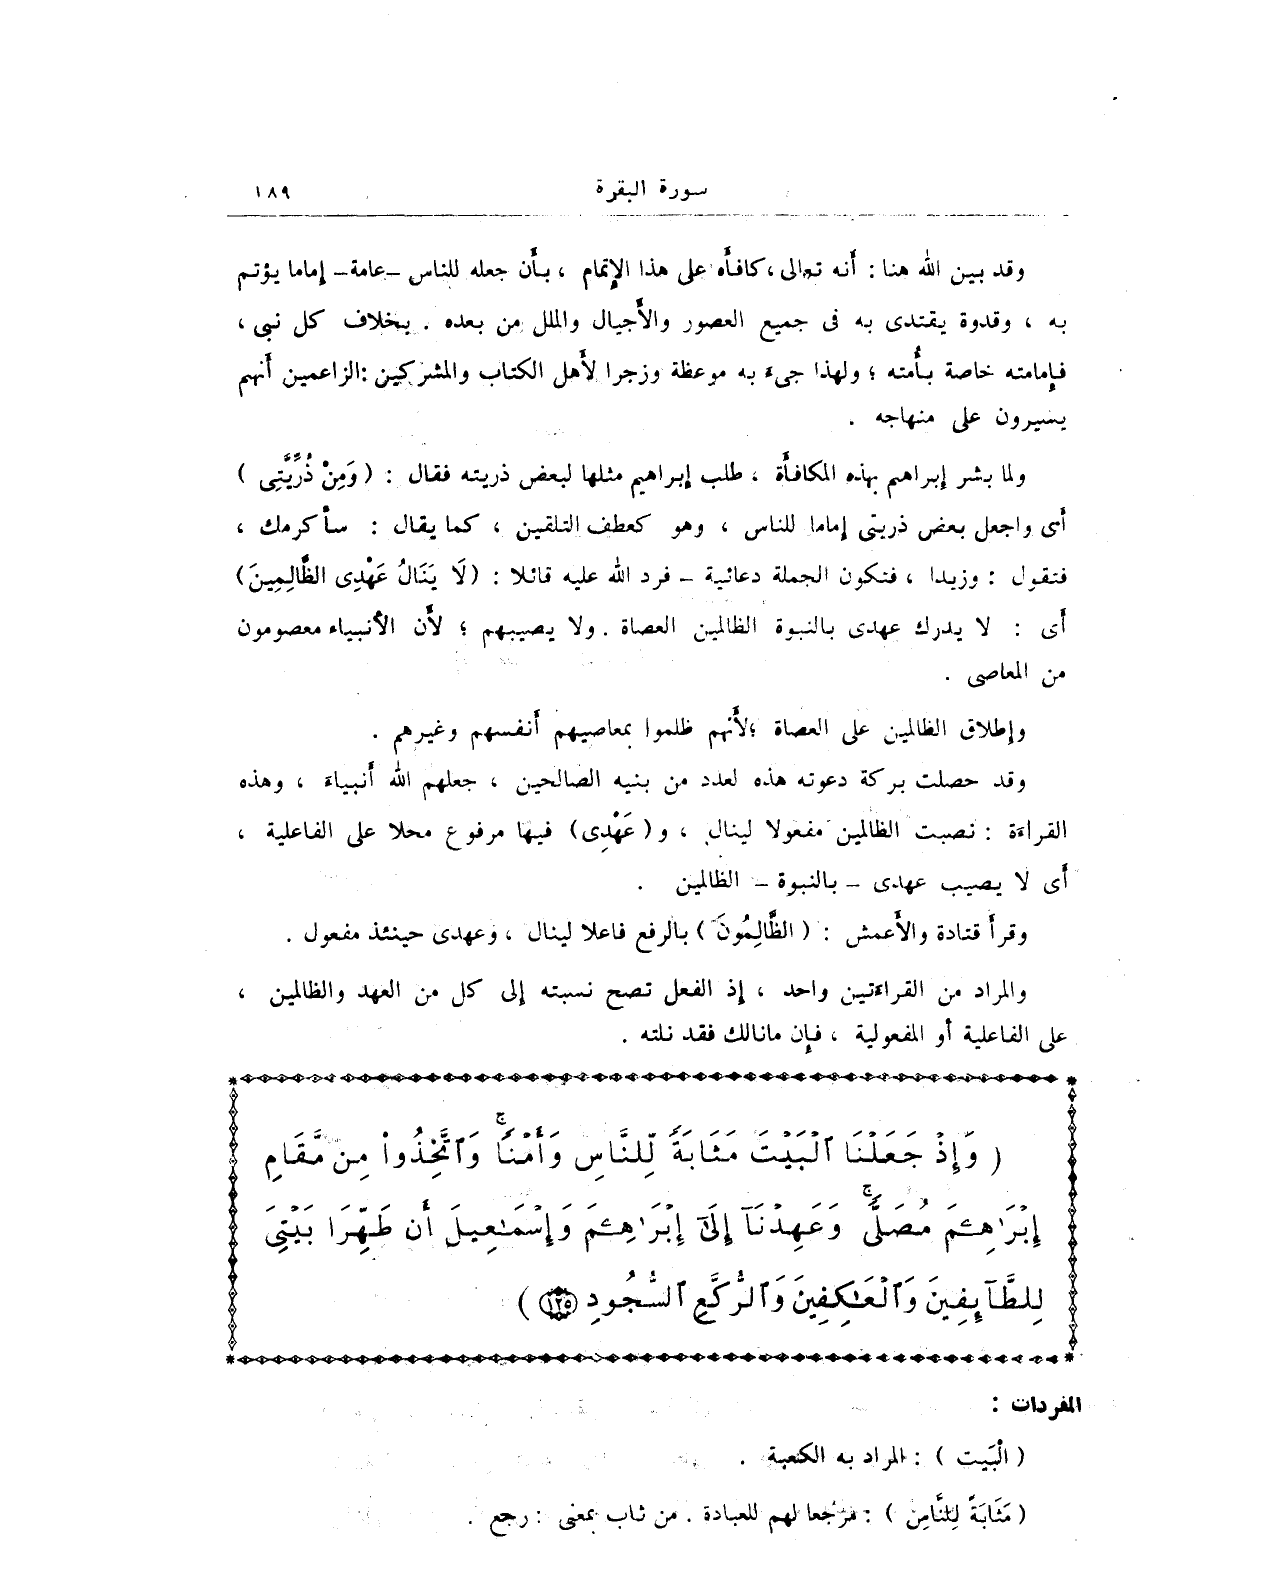 سورة البقرة ١٨٩
وقد بين الله هنا : أنه تعالى ، كافأه على هذا الإتمام ، بأن جعله للناس –عامة– إماما يؤتم
به ، وقدوة يقتدى به فى جميع العصور والأجيال والملل من بعده . بخلاف كل نبى ،
فإمامته خاصة بأمته ؛ ولهذا جىء به موعظة وزجرا لأهل الكتاب والمشركين :الزاعمين أنهم
يسيرون على منهاجه .
ولما بشر إبراهيم بهذه المكافأة ، طلب إبراهيم مثلها لبعض ذريته فقال : ( وَمِنْ ذُرِّيَّتِى )
أى واجعل بعض ذريتى إماما للناس ، وهو كعطف التلقين ، كما يقال : سأكرمك ،
فتقول : وزيدا ، فتكون الجملة دعائية – فرد الله عليه قائلا : (لَا يَنَالُ عَهْدِى الظَّالِمِينَ)
أى : لا يدرك عهدى بالنبوة الظالمين العصاة . ولا يصيبهم ؛ لأن الأنبياء معصومون
من المعاصى .
وإطلاق الظالمين على العصاة ؛لأنهم ظلموا بمعاصيهم أنفسهم وغيرهم .
وقد حصلت بركة دعوته هذه لعدد من بنيه الصالحين ، جعلهم الله أنبياء ، وهذه
القراءة : نصبت الظالمين مفعولا لينال ، و( عَهْدِى ) فيها مرفوع محلا على الفاعلية ،
أى لا يصيب عهدى – بالنبوة – الظالمين .
وقرأ قتادة والأعمش : ( الظَّالِمُونَ ) بالرفع فاعلا لينال ، وعهدى حينئذ مفعول .
والمراد من القراءتين واحد ، إذ الفعل تصح نسبته إلى كل من العهد والظالمين ،
على الفاعلية أو المفعولية ، فإن مانالك فقد نلته .
( وَإِذْ جَعَلْنَا ٱلْبَيْتَ مَثَابَةً لِّلنَّاسِ وَأَمْنًا ۚ وَٱتَّخِذُوا۟ مِن مَّقَامِ
إِبْرَٰهِـۧمَ مُصَلًّى ۚ وَعَهِدْنَآ إِلَىٰٓ إِبْرَٰهِـۧمَ وَإِسْمَـٰعِيلَ أَن طَهِّرَا بَيْتِىَ
لِلطَّآئِفِينَ وَٱلْعَـٰكِفِينَ وَٱلرُّكَّعِ ٱلسُّجُودِ ١٢٥ )
المفردات :
( الْبَيْت ) : المراد به الكعبة .
( مَثَابَةً لِلنَّاسِ ) : مَرْجعا لهم للعبادة . من ثاب بمعنى : رجع .